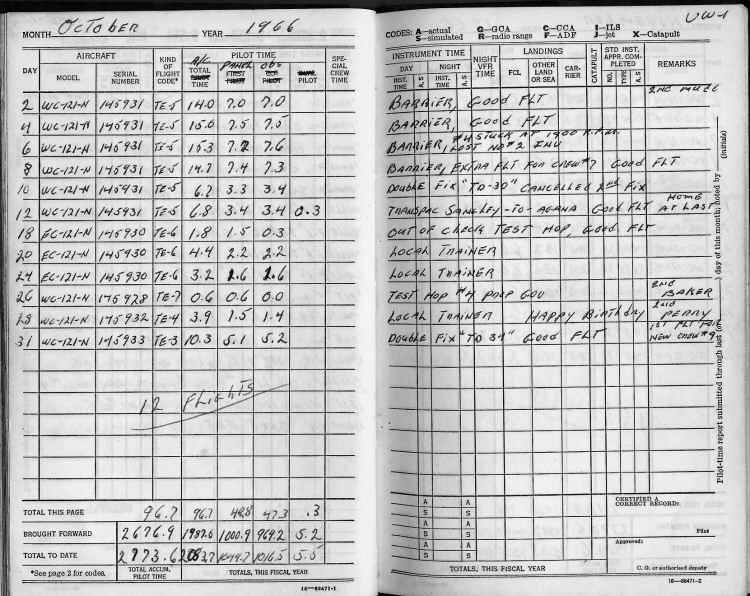 MONTH OCTOBER YEAR 1966
AIRCRAFT KIND OF FLIGHT CODE* A/C PILOT TIME SPECIAL CREW TIME
DAY MODEL SERIAL NUMBER TOTAL TIME PANEL FIRST PILOT OBS PILOT
2 WC-121-N 145931 TE-5 14.0 7.0 7.0
4 WC-121-N 145931 TE-5 15.0 7.5 7.5
6 WC-121-N 145931 TE-5 15.3 7.2 7.6
8 WC-121-N 145931 TE-5 14.7 7.4 7.3
10 WC-121-N 145931 TE-5 6.7 3.3 3.4
12 WC-121-N 145931 TE-5 6.8 3.4 3.4 0.3
18 EC-121-N 145930 TE-6 1.8 1.5 0.3
20 EC-121-N 145930 TE-6 4.4 2.2 2.2
24 EC-121-N 145930 TE-6 3.2 1.6 1.6
26 WC-121-N 145928 TE-7 0.6 0.6 0.0
28 WC-121-N 145932 TE-4 3.9 1.5 1.4
31 WC-121-N 145933 TE-3 10.3 5.1 5.2
12 FLIGHTS
TOTAL THIS PAGE 96.7 96.7 48.8 47.3 .3
BROUGHT FORWARD 2676.9 1982.0 1000.9 969.2 5.2
TOTAL TO DATE 2773.6 1049.7 1016.5 5.5
*See page 2 for codes. TOTAL ACCUM. PILOT TIME TOTALS, THIS FISCAL YEAR
16—69471-1
VW-1
CODES: A—actual G—GCA C—CCA I—ILS
S—simulated R—radio range F—ADF J—jet X—Catapult
INSTRUMENT TIME NIGHT VFR TIME LANDINGS CATAPULT STD INST. APPR. COMPLETED REMARKS
DAY NIGHT FCL OTHER LAND OR SEA CARRIER NO. TYPE A, S
INST. TIME A, S INST. TIME A, S
BARRIER, GOOD FLT
BARRIER, GOOD FLT
BARRIER, #4 STUCK AT 1900 R.P.M. LOST NO #2 INV
BARRIER, EXTRA FLT FOR CREW #7 GOOD FLT
DOUBLE FIX "TD-30" CANCELLED 2nd FIX
TRANSPAC SANGLEY-TO-AGANA GOOD FLT HOME AT LAST
OUT OF CHECK TEST HOP, GOOD FLT
LOCAL TRAINER
LOCAL TRAINER
TEST HOP #4 PROP GOV 2ND BAKER
LOCAL TRAINER HAPPY BIRTHDAY 2ND PERRY
DOUBLE FIX "TD 34" GOOD FLT 1ST FLT FOR NEW CREW #9
A A
S S
A A
S S
A A
S S
TOTALS, THIS FISCAL YEAR
CERTIFIED A CORRECT RECORD:
Pilot
Approved:
C. O. or authorized deputy
16—69471-2
Pilot-time report submitted through last (or ) day of this month; noted by (initials)